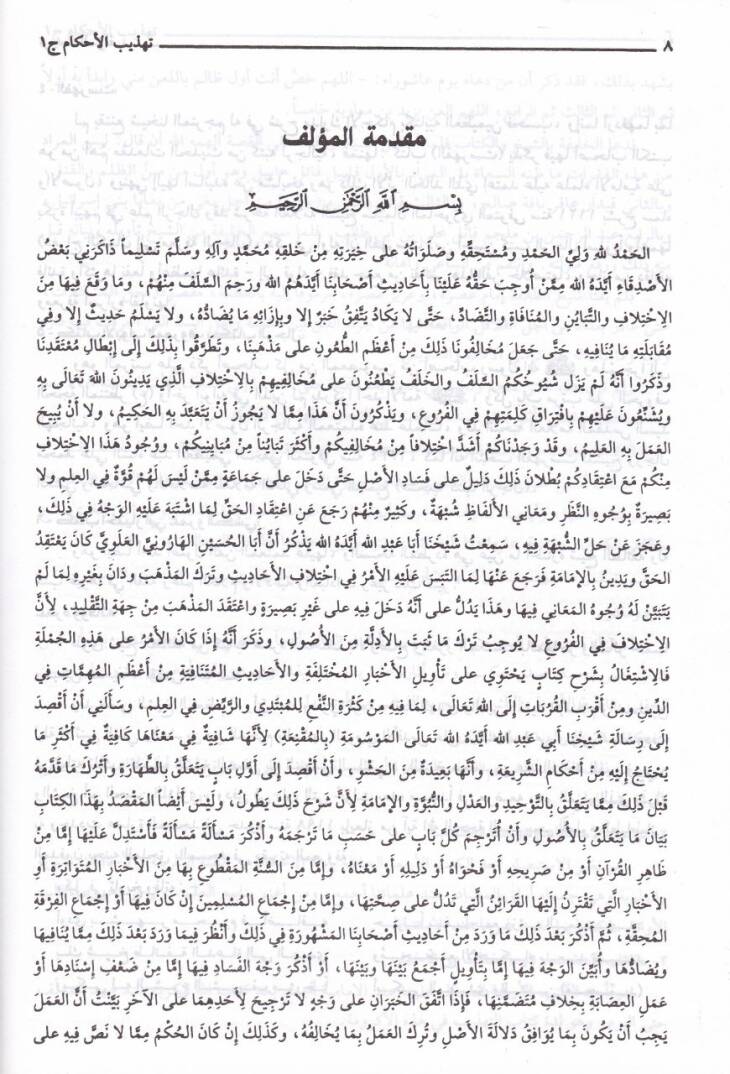 ٨ تهذيب الأحكام ج١
مقدمة المؤلف
بِسْمِ اللهِ الرَّحْمٰنِ الرَّحِيْمِ
الحَمْدُ للهِ وَلِيِّ الحَمْدِ ومُسْتَحِقِّهِ وصَلَوَاتُهُ على خِيَرَتِهِ مِنْ خَلقِهِ مُحَمَّدٍ وآلِهِ وسَلَّمَ تَسْلِيماً ذَاكَرَنِي بَعْضُ
الأَصْدِقَاءِ أَيَّدَهُ الله مِمَّنْ أُوجِبَ حَقُّهُ عَلَيْنَا بِأَحَادِيثِ أَصْحَابِنَا أَيَّدَهُمُ الله ورَحِمَ السَّلَفَ مِنْهُمْ، ومَا وَقَعَ فِيهَا مِنَ
الِاخْتِلَافِ والتَّبَايُنِ والمُنَافَاةِ والتَّضَادِّ، حَتَّى لَا يَكَادُ يَتَّفِقُ خَبَرٌ إلا وبِإِزَائِهِ مَا يُضَادُّهُ، ولا يَسْلَمُ حَدِيثٌ إلا وفِي
مُقَابَلَتِهِ مَا يُنَافِيهِ، حَتَّى جَعَلَ مُخَالِفُونَا ذَلِكَ مِنْ أَعْظَمِ الطُّعُونِ على مَذْهَبِنَا، وتَطَرَّقُوا بِذَلِكَ إِلَى إِبْطَالِ مُعْتَقَدِنَا
وذَكَرُوا أَنَّهُ لَمْ يَزَل شُيُوخُكُمُ السَّلَفُ والخَلَفُ يَطْعُنُونَ على مُخَالِفِيهِم بِالِاخْتِلَافِ الَّذِي يَدِينُونَ اللهَ تَعَالَى بِهِ
ويُشَنِّعُونَ عَلَيْهِمْ بِافْتِرَاقِ كَلِمَتِهِمْ فِي الفُرُوعِ، ويَذْكُرُونَ أَنَّ هَذَا مِمَّا لَا يَجُوزُ أَنْ يَتَعَبَّدَ بِهِ الحَكِيمُ، ولا أَنْ يُبِيحَ
العَمَلَ بِهِ العَلِيمُ، وقَدْ وَجَدْنَاكُمْ أَشَدَّ اخْتِلَافاً مِنْ مُخَالِفِيكُمْ وأَكْثَرَ تَبَايُناً مِنْ مُبَايِنِيكُمْ، ووُجُودُ هَذَا الِاخْتِلَافِ
مِنْكُمْ مَعَ اعْتِقَادِكُمْ بُطْلَانَ ذَلِكَ دَلِيلٌ على فَسَادِ الأَصْلِ حَتَّى دَخَلَ على جَمَاعَةٍ مِمَّنْ لَيْسَ لَهُمْ قُوَّةٌ فِي العِلمِ ولا
بَصِيرَةٌ بِوُجُوهِ النَّظَرِ ومَعَانِي الأَلفَاظِ شُبْهَةٌ، وكَثِيرٌ مِنْهُمْ رَجَعَ عَنِ اعْتِقَادِ الحَقِّ لِمَا اشْتَبَهَ عَلَيْهِ الوَجْهُ فِي ذَلِكَ،
وعَجَزَ عَنْ حَلِّ الشُّبْهَةِ فِيهِ، سَمِعْتُ شَيْخَنَا أَبَا عَبْدِ الله أَيَّدَهُ الله يَذْكُرُ أَنَّ أَبَا الحُسَيْنِ الهَارُونِيَّ العَلَوِيَّ كَانَ يَعْتَقِدُ
الحَقَّ ويَدِينُ بِالإِمَامَةِ فَرَجَعَ عَنْهَا لِمَا التَبَسَ عَلَيْهِ الأَمْرُ فِي اخْتِلَافِ الأَحَادِيثِ وتَرَكَ المَذْهَبَ ودَانَ بِغَيْرِهِ لِمَا لَمْ
يَتَبَيَّنْ لَهُ وُجُوهُ المَعَانِي فِيهَا وهَذَا يَدُلُّ على أَنَّهُ دَخَلَ فِيهِ على غَيْرِ بَصِيرَةٍ واعْتَقَدَ المَذْهَبَ مِنْ جِهَةِ التَّقْلِيدِ، لِأَنَّ
الِاخْتِلَافَ فِي الفُرُوعِ لا يُوجِبُ تَرْكَ مَا ثَبَتَ بِالأَدِلَّةِ مِنَ الأُصُولِ، وذَكَرَ أَنَّهُ إِذَا كَانَ الأَمْرُ على هَذِهِ الجُمْلَةِ
فَالِاشْتِغَالُ بِشَرْحِ كِتَابٍ يَحْتَوِي على تَأْوِيلِ الأَخْبَارِ المُخْتَلِفَةِ والأَحَادِيثِ المُتَنَافِيَةِ مِنْ أَعْظَمِ المُهِمَّاتِ فِي
الدِّينِ ومِنْ أَقْرَبِ القُرُبَاتِ إِلَى اللهِ تَعَالَى، لِمَا فِيهِ مِنْ كَثْرَةِ النَّفْعِ لِلمُبْتَدِي والرَّيِّضِ فِي العِلمِ، وسَأَلَنِي أَنْ أَقْصِدَ
إِلَى رِسَالَةِ شَيْخِنَا أَبِي عَبْدِ الله أَيَّدَهُ الله تَعَالَى المَوْسُومَةِ (بِالمُقْنِعَةِ) لِأَنَّهَا شَافِيَةٌ فِي مَعْنَاهَا كَافِيَةٌ فِي أَكْثَرِ مَا
يُحْتَاجُ إِلَيْهِ مِنْ أَحْكَامِ الشَّرِيعَةِ، وأَنَّهَا بَعِيدَةٌ مِنَ الحَشْوِ، وأَنْ أَقْصِدَ إِلَى أَوَّلِ بَابٍ يَتَعَلَّقُ بِالطَّهَارَةِ وأَتْرُكَ مَا قَدَّمَهُ
قَبْلَ ذَلِكَ مِمَّا يَتَعَلَّقُ بِالتَّوْحِيدِ والعَدْلِ والنُّبُوَّةِ والإِمَامَةِ لِأَنَّ شَرْحَ ذَلِكَ يَطُولُ، ولَيْسَ أَيْضاً المَقْصَدُ بِهَذَا الكِتَابِ
بَيَانَ مَا يَتَعَلَّقُ بِالأُصُولِ وأَنْ أُتَرْجِمَ كُلَّ بَابٍ على حَسَبِ مَا تَرْجَمَهُ وأَذْكُرَ مَسْأَلَةً مَسْأَلَةً فَأَسْتَدِلَّ عَلَيْهَا إِمَّا مِنْ
ظَاهِرِ القُرْآنِ أَوْ مِنْ صَرِيحِهِ أَوْ فَحْوَاهُ أَوْ دَلِيلِهِ أَوْ مَعْنَاهُ، وإِمَّا مِنَ السُّنَّةِ المَقْطُوعِ بِهَا مِنَ الأَخْبَارِ المُتَوَاتِرَةِ أَوِ
الأَخْبَارِ الَّتِي تَقْتَرِنُ إِلَيْهَا القَرَائِنُ الَّتِي تَدُلُّ على صِحَّتِهَا، وإِمَّا مِنْ إِجْمَاعِ المُسْلِمِينَ إِنْ كَانَ فِيهَا أَوْ إِجْمَاعِ الفِرْقَةِ
المُحِقَّةِ، ثُمَّ أَذْكُرَ بَعْدَ ذَلِكَ مَا وَرَدَ مِنْ أَحَادِيثِ أَصْحَابِنَا المَشْهُورَةِ فِي ذَلِكَ وأَنْظُرَ فِيمَا وَرَدَ بَعْدَ ذَلِكَ مِمَّا يُنَافِيهَا
ويُضَادُّهَا وأُبَيِّنَ الوَجْهَ فِيهَا إِمَّا بِتَأْوِيلٍ أَجْمَعُ بَيْنَهَا وبَيْنَهَا، أَوْ أَذْكُرَ وَجْهَ الفَسَادِ فِيهَا إِمَّا مِنْ ضَعْفِ إِسْنَادِهَا أَوْ
عَمَلِ العِصَابَةِ بِخِلَافِ مُتَضَمَّنِهَا، فَإِذَا اتَّفَقَ الخَبَرَانِ على وَجْهٍ لا تَرْجِيحَ لِأَحَدِهِمَا على الآخَرِ بَيَّنْتُ أَنَّ العَمَلَ
يَجِبُ أَنْ يَكُونَ بِمَا يُوَافِقُ دَلَالَةَ الأَصْلِ وتُرِكَ العَمَلُ بِمَا يُخَالِفُهُ، وكَذَلِكَ إِنْ كَانَ الحُكْمُ مِمَّا لا نَصَّ فِيهِ على